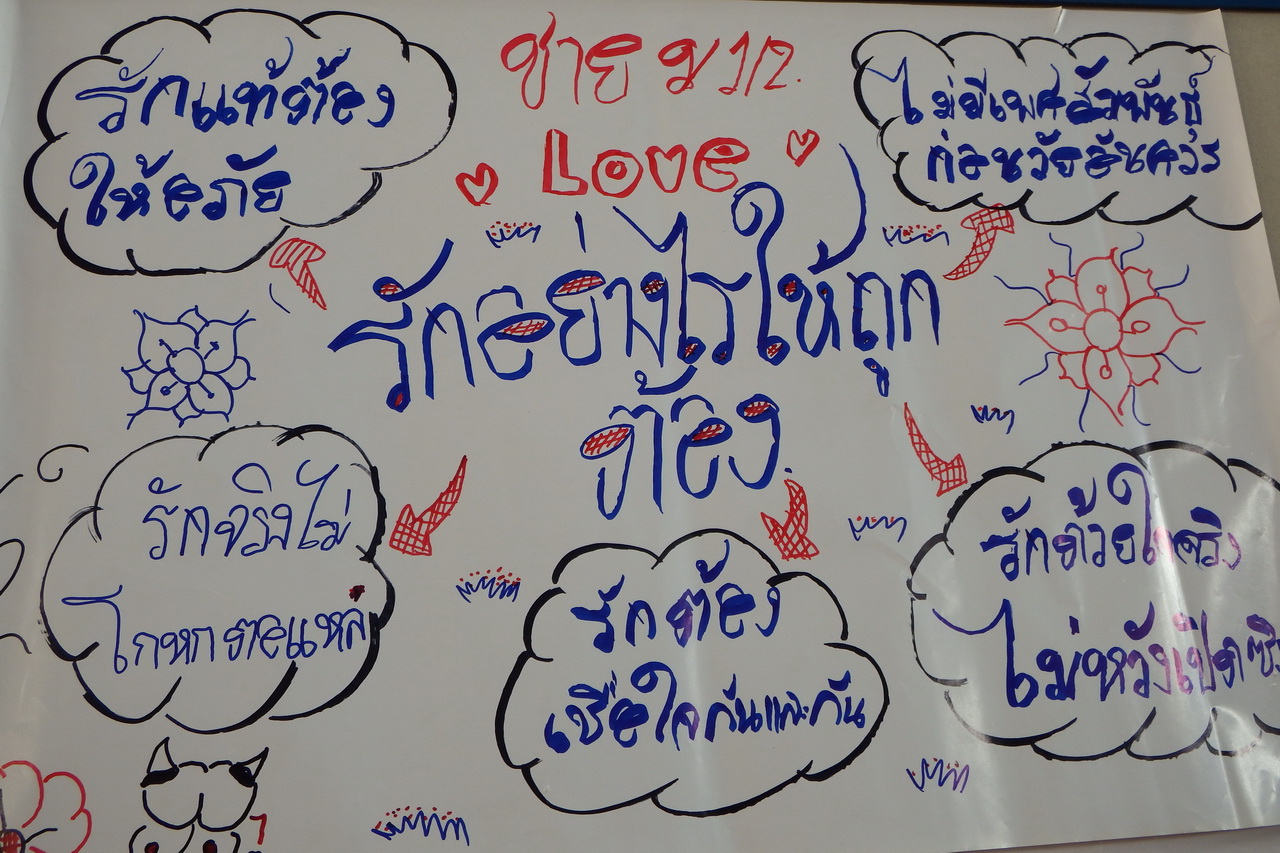 ชาย ม 1/2.
Love
รักอย่างไรให้ถูก
ต้อง.
รักแท้ต้อง
ให้อภัย
ไม่มีเพศสัมพันธุ์
ก่อนวัยอันควร
รักจริงไม่
โกหกตอแหล
รักต้อง
เชื่อใจกันและกัน
รักด้วยใจจริง
ไม่หวังเปิดซิ